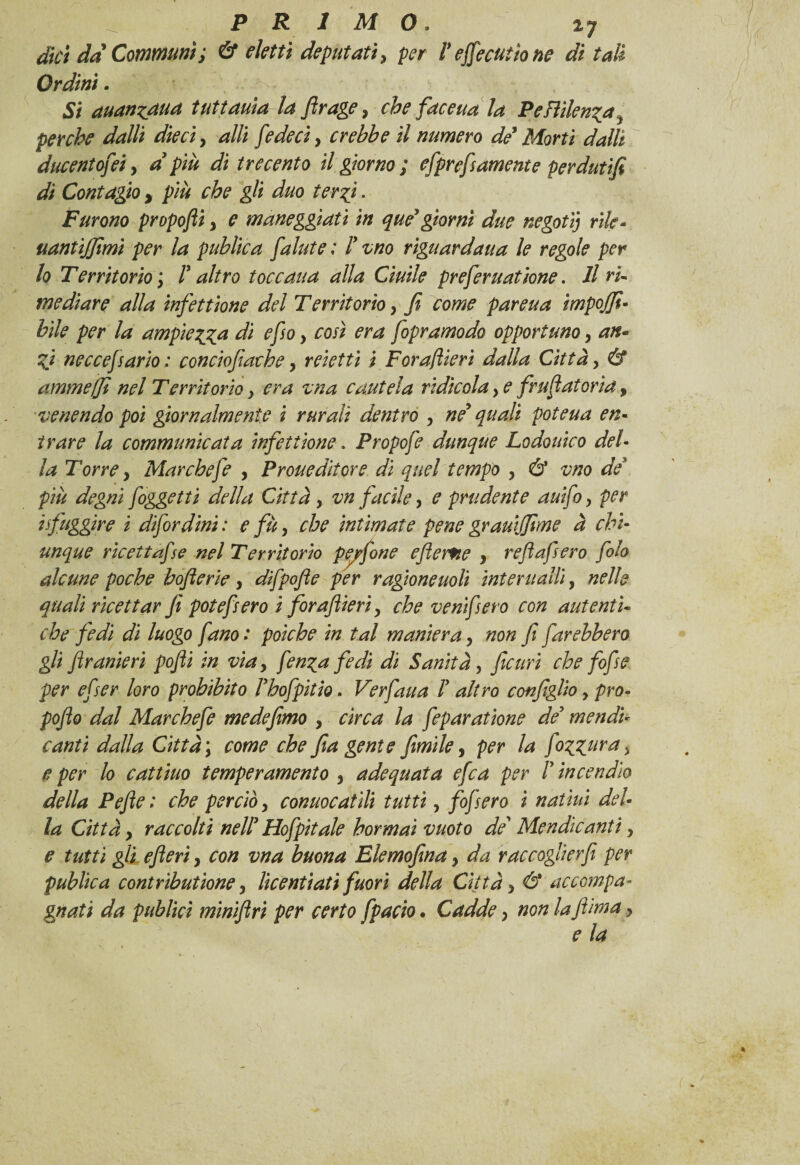 PRIMO. 27
dici da' Communi; & eletti deputati, per l'eſſecutione di tali
Ordini.
Si auanzaua tuttauia la ſtrage, che faceua la Peſtilenza,
perche dalli dieci, alli ſedeci, crebbe il numero de' Morti dalli
ducentoſei, a' più di trecento il giorno; eſpreſsamente perdutiſi
di Contagio, più che gli duo terzi.
Furono propoſti, e maneggiati in que' giorni due negotij rile-
uantiſſimi per la publica ſalute: l'vno riguardaua le regole per
lo Territorio; l'altro toccaua alla Ciuile preſeruatione. Il ri-
mediare alla infettione del Territorio, ſi come pareua impoſſi-
bile per la ampiezza di eſso, così era ſopramodo opportuno, an-
zi necceſsario: concioſiache, reietti i Foraſtieri dalla Città, &
ammeſſi nel Territorio, era vna cautela ridicola, e fruſtatoria,
venendo poi giornalmente i rurali dentro, ne' quali poteua en-
trare la communicata infettione. Propoſe dunque Lodouico del-
la Torre, Marcheſe, Proueditore di quel tempo, & vno de'
più degni ſoggetti della Città, vn facile, e prudente auiſo, per
iſfuggire i diſordini: e fù, che intimate pene grauiſſime à chi-
unque ricettaſse nel Territorio perſone eſterne, reſtaſsero ſolo
alcune poche hoſterie, diſpoſte per ragioneuoli interualli, nelle
quali ricettar ſi poteſsero i foraſtieri, che veniſsero con autenti-
che fedi di luogo ſano: poiche in tal maniera, non ſi ſarebbero
gli ſtranieri poſti in via, ſenza fedi di Sanità, ſicuri che foſse
per eſser loro prohibito l'hoſpitio. Verſaua l'altro conſiglio, pro-
poſto dal Marcheſe medeſimo, circa la ſeparatione de' mendi-
canti dalla Città; come che ſia gente ſimile, per la ſozzura,
e per lo cattiuo temperamento, adequata eſca per l'incendio
della Peſte: che perciò, conuocatili tutti, foſsero i natiui del-
la Città, raccolti nell'Hoſpitale hormai vuoto de' Mendicanti,
e tutti gli eſteri, con vna buona Elemoſina, da raccoglierſi per
publica contributione, licentiati fuori della Città, & accompa-
gnati da publici miniſtri per certo ſpacio. Cadde, non la ſtima,
e la